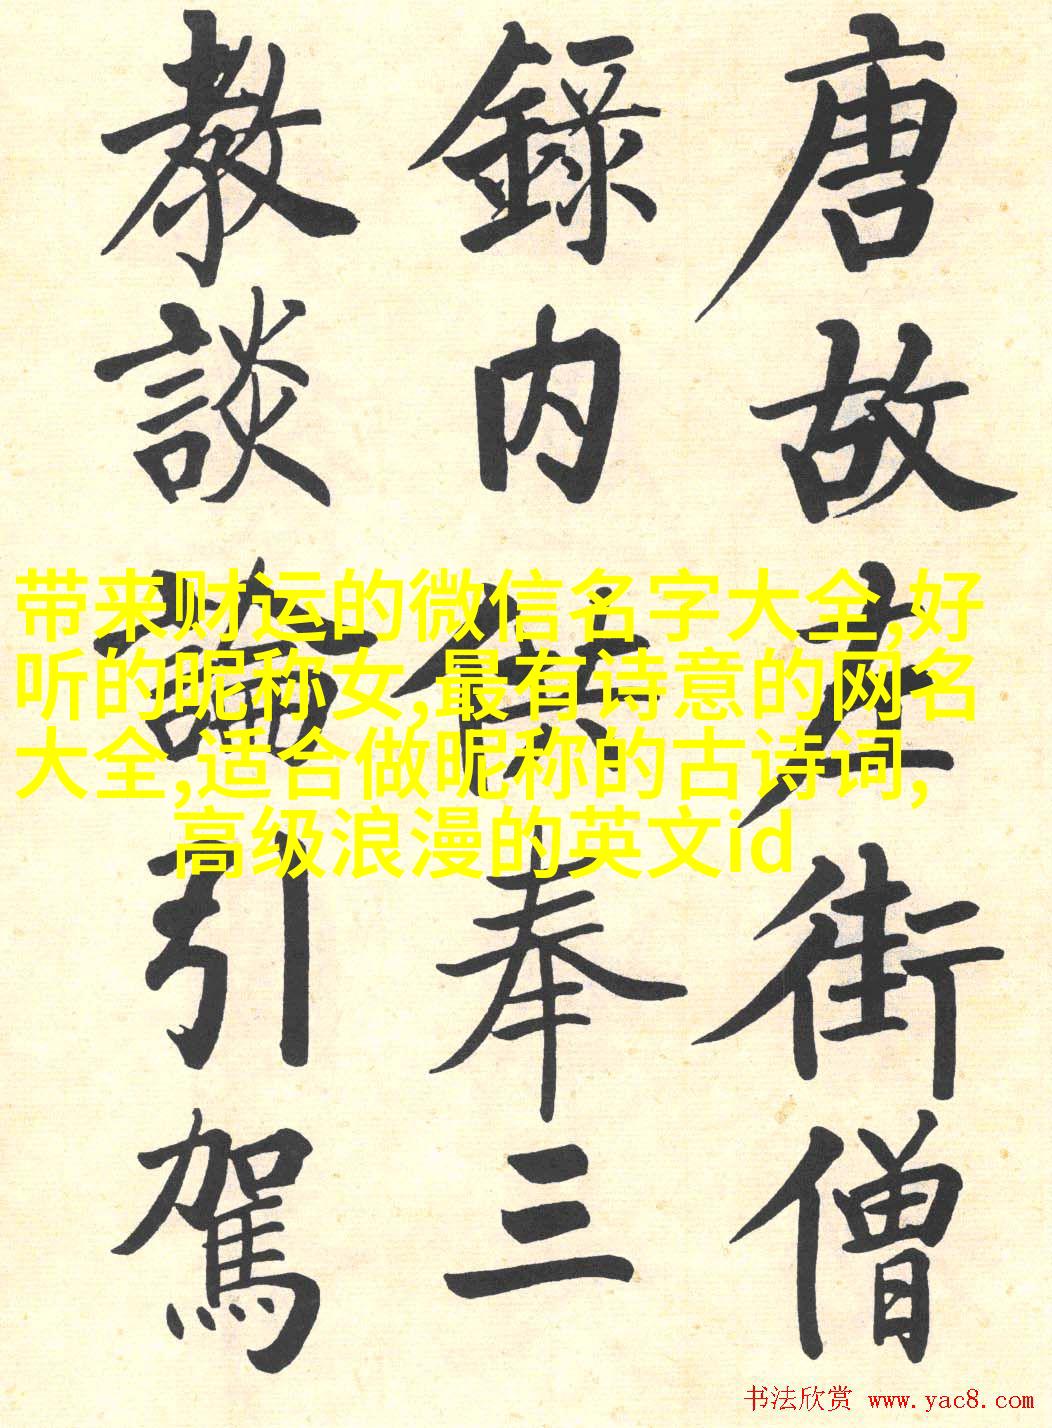 唐故左街僧
錄内供奉三
教談論引駕
带来财运的微信名字大全,好
听的昵称女,最有诗意的网名
大全,适合做昵称的古诗词,
高级浪漫的英文id
书法欣赏 www.yac8.com